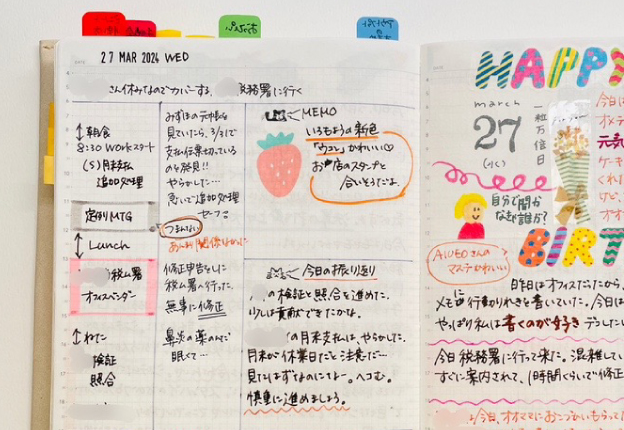 27 MAR 2024 WED
さん休みなのでカバーする、
税務署に行く
朝食
8:30 Workスタート
(S)月末支払
追加処理
定例MTG
Lunch
税ム署
オフィスベンダー
ねた
検証
照合
みずほの元帳を
見ていたら、3/31で
支払伝票切っている
のを発見!!
やらかした…
急いで追加処理
セーフ。
つまんない
修正申告をしに
税ム署へ行った。
無事に修正
鼻炎の薬のんで
眠くて…
MEMO
いろもようの新色
「ウコン」かわいい♡
お店のスタンプと
合いそうだよ。
今日の振り返り
の検証と照合を進めた。
少しは貢献できたかな。
の月末支払は、やらかした。
月末が休業日だと注意だ…
見ていたはずなのになー。ヘコむ。
慎重に進めましょう。
HAPPY
march
27
(水)
一粒万倍日
自分で聞か
なきゃ誰か?
BIRT
AIUEOさんの
マステかわいい
今日は
オメデ
元気
ケーキ
くれ
けど、
昨日はオフィスだったから、
メモに行動りれきを書いていた。今日は
やっぱり私は書くのが好き
今日税務署に行って来た。混雑してい
すぐに案内されて、1時間くらいで修正
今日、オオママにおこづかいもらって